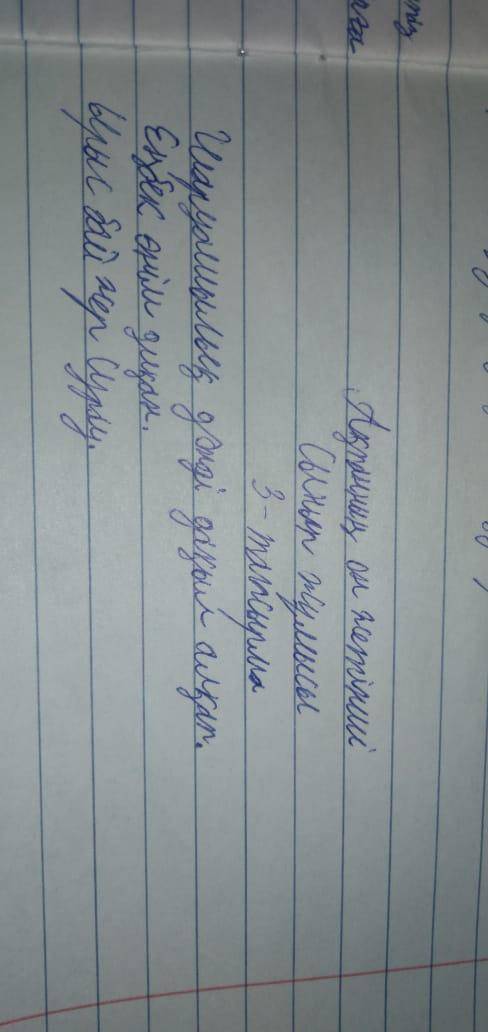 Ақпанның он жетінші
Сынып жұмысы
3-тапсырма
Шаруашылық дәнді дақыл алқап.
Еңбек өнім
Ырыс бай жер